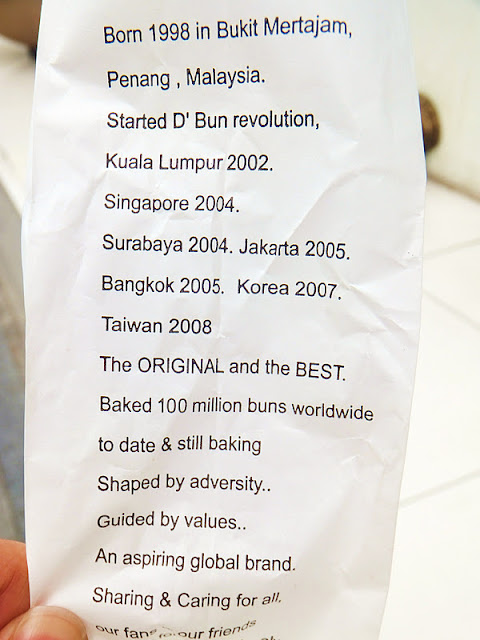 Born 1998 in Bukit Mertajam,
Penang , Malaysia.
Started D' Bun revolution,
Kuala Lumpur 2002.
Singapore 2004.
Surabaya 2004. Jakarta 2005.
Bangkok 2005. Korea 2007.
Taiwan 2008
The ORIGINAL and the BEST.
Baked 100 million buns worldwide
to date & still baking
Shaped by adversity..
Guided by values..
An aspiring global brand.
Sharing & Caring for all.
our fans our friends